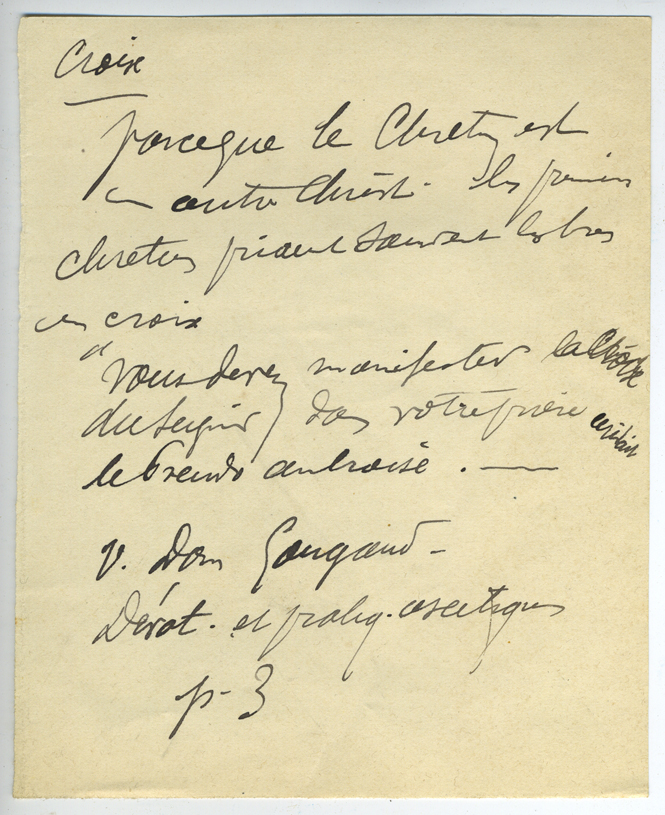 Croix
parceque le Chretien est
un autre Christ. les premiers
chretiens priaient souvent les bras
en croix
"vous devez manifester la Croix
du Seigneur dans votre prière écrivait
le Pseudo ambroise. —
V. Dom Gougaud -
Dévot. et pratiq. ascetiques
p. 3